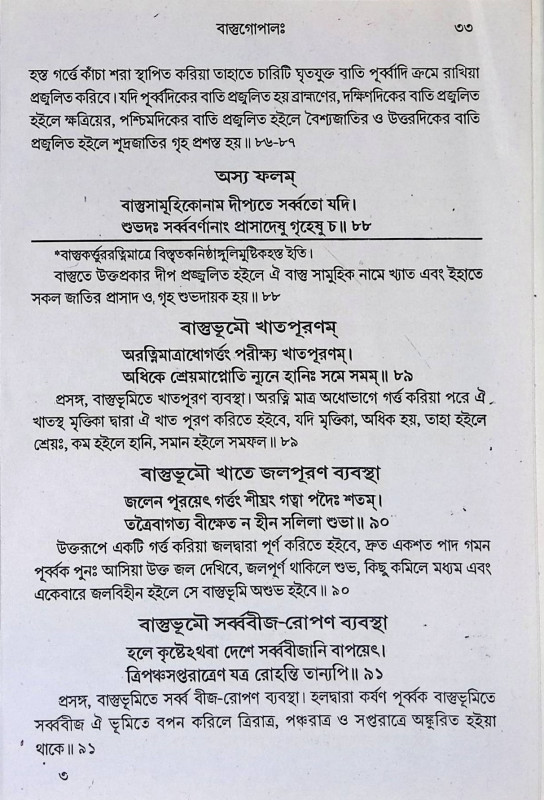 বাস্তুগোপালঃ ৩৩
হস্ত গর্ত্তে কাঁচা শরা স্থাপিত করিয়া তাহাতে চারিটি ঘৃতযুক্ত বাতি পূর্ব্বাদি ক্রমে রাখিয়া
প্রজ্বলিত করিবে। যদি পূর্ব্বদিকের বাতি প্রজ্বলিত হয় ব্রাহ্মণের, দক্ষিণদিকের বাতি প্রজ্বলিত
হইলে ক্ষত্রিয়ের, পশ্চিমদিকের বাতি প্রজ্বলিত হইলে বৈশ্যজাতির ও উত্তরদিকের বাতি
প্রজ্বলিত হইলে শূদ্রজাতির গৃহ প্রশস্ত হয়॥ ৮৬-৮৭
অস্য ফলম্
বাস্তুসামূহিকোনাম দীপ্যতে সর্ব্বতো যদি।
শুভদঃ সর্ব্ববর্ণানাং প্রাসাদেষু গৃহেষু চ॥ ৮৮
*বাস্তুকর্ত্তুররত্নিমাত্রে বিস্তৃতকনিষ্ঠাঙ্গুলিমুষ্টিকহস্ত ইতি।
বাস্তুতে উক্তপ্রকার দীপ প্রজ্জ্বলিত হইলে ঐ বাস্তু সামূহিক নামে খ্যাত এবং ইহাতে
সকল জাতির প্রাসাদ ও, গৃহ শুভদায়ক হয়॥ ৮৮
বাস্তুভূমৌ খাতপূরণম্
অরত্নিমাত্রাধোগর্ত্তং পরীক্ষ্য খাতপূরণম্।
অধিকে শ্রেয়মাপ্নোতি ন্যূনে হানিঃ সমে সমম্॥ ৮৯
প্রসঙ্গ, বাস্তুভূমিতে খাতপূরণ ব্যবস্থা। অরত্নি মাত্র অধোভাগে গর্ত্ত করিয়া পরে ঐ
খাতস্থ মৃত্তিকা দ্বারা ঐ খাত পূরণ করিতে হইবে, যদি মৃত্তিকা, অধিক হয়, তাহা হইলে
শ্রেয়ঃ, কম হইলে হানি, সমান হইলে সমফল॥ ৮৯
বাস্তুভূমৌ খাতে জলপূরণ ব্যবস্থা
জলেন পূরয়েৎ গর্ত্তং শীঘ্রং গত্বা পদৈঃ শতম্।
তত্রৈবাগত্য বীক্ষেত ন হীন সলিলা শুভা॥ ৯০
উক্তরূপে একটি গর্ত্ত করিয়া জলদ্বারা পূর্ণ করিতে হইবে, দ্রুত একশত পাদ গমন
পূর্ব্বক পুনঃ আসিয়া উক্ত জল দেখিবে, জলপূর্ণ থাকিলে শুভ, কিছু কমিলে মধ্যম এবং
একেবারে জলবিহীন হইলে সে বাস্তুভূমি অশুভ হইবে॥ ৯০
বাস্তুভূমৌ সর্ব্ববীজ-রোপণ ব্যবস্থা
হলে কৃষ্টেঽথবা দেশে সর্ব্ববীজানি বাপয়েৎ।
ত্রিপঞ্চসপ্তরাত্রেণ যত্র রোহন্তি তান্যপি॥ ৯১
প্রসঙ্গ, বাস্তুভূমিতে সর্ব্ব বীজ-রোপণ ব্যবস্থা। হলদ্বারা কর্ষণ পূর্ব্বক বাস্তুভূমিতে
সর্ব্ববীজ ঐ ভূমিতে বপন করিলে ত্রিরাত্র, পঞ্চরাত্র ও সপ্তরাত্রে অঙ্কুরিত হইয়া
থাকে॥ ৯১
৩